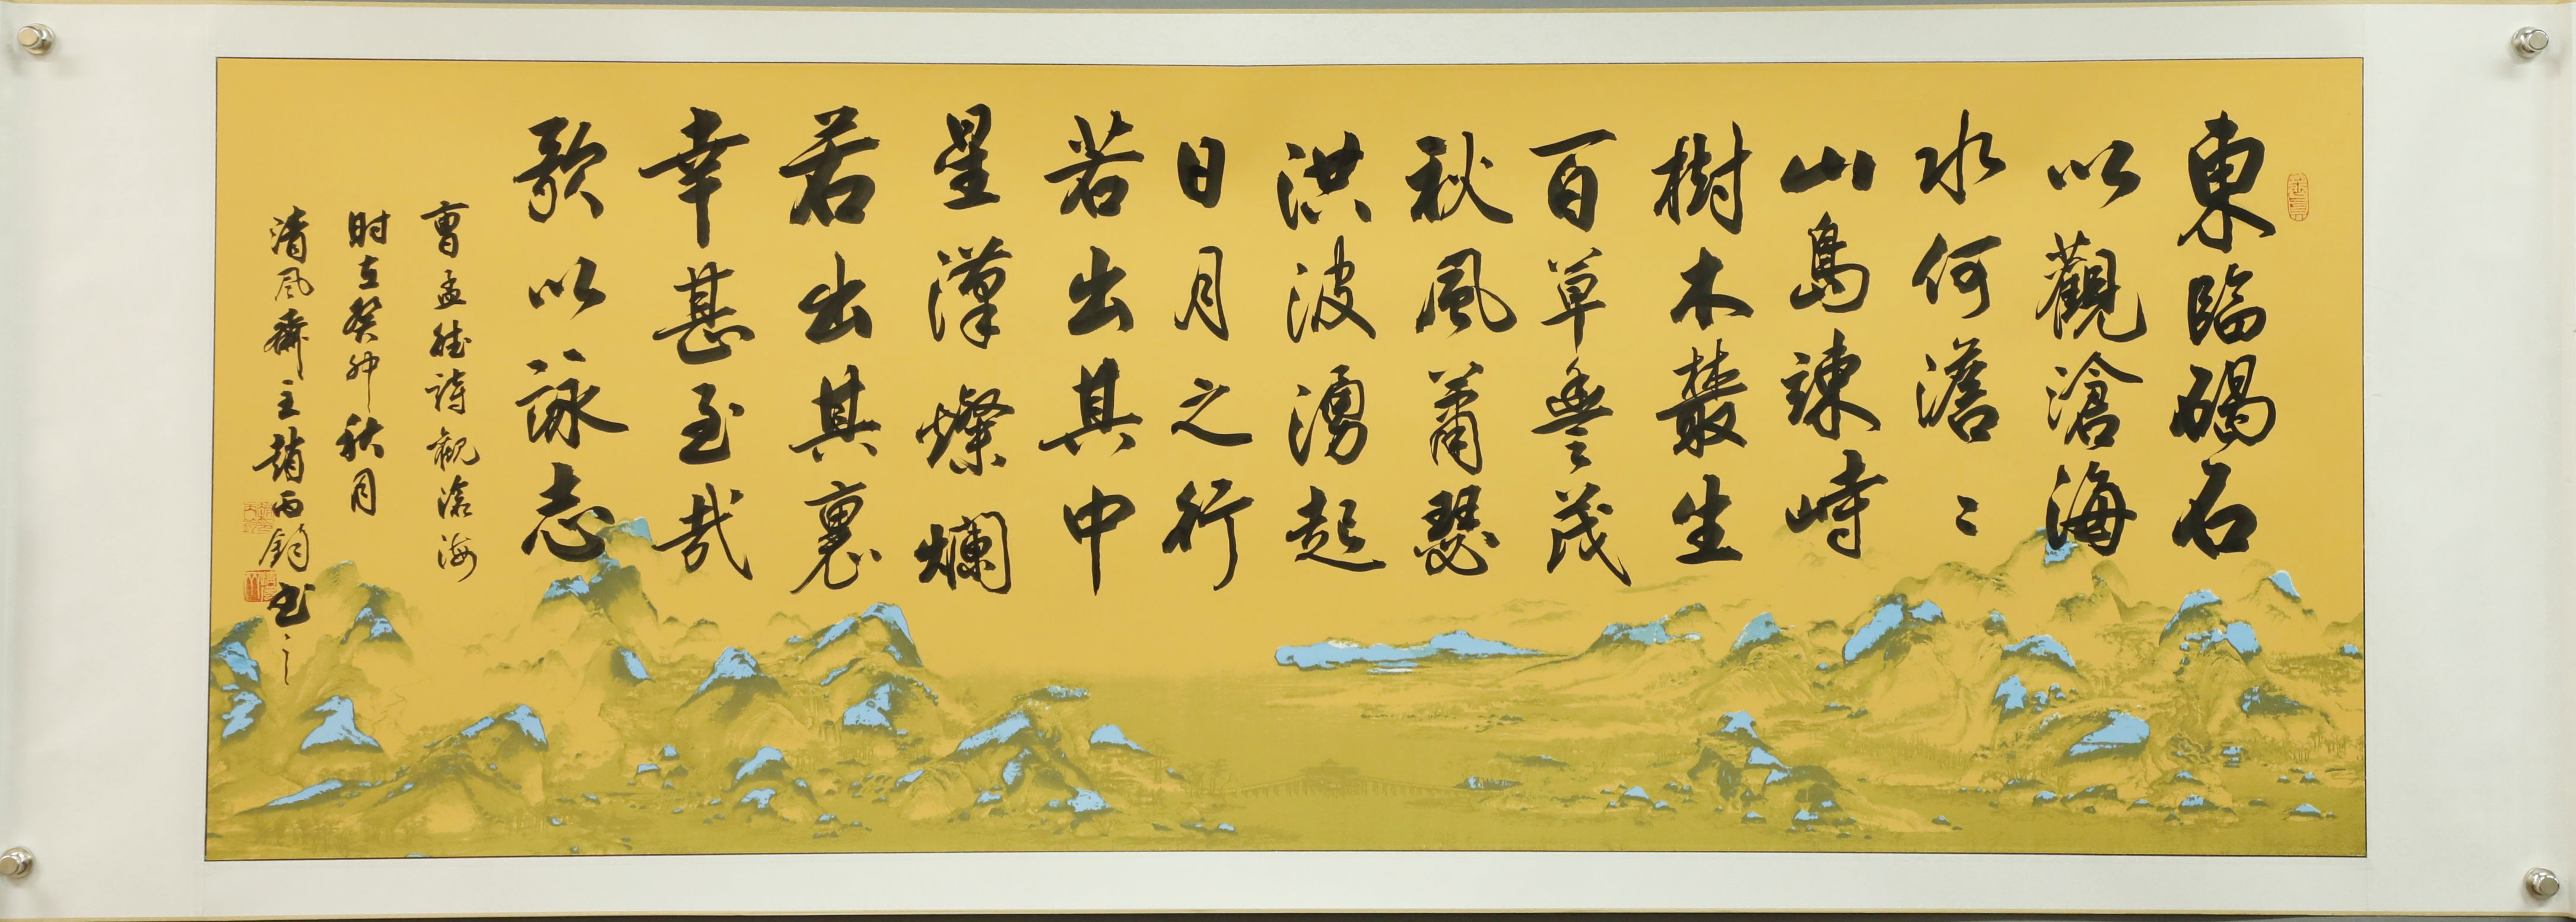 東臨碣石
以觀滄海
水何澹〻
山島竦峙
樹木叢生
百草豐茂
秋風蕭瑟
洪波湧起
日月之行
若出其中
星漢燦爛
若出其裏
幸甚至哉
歌以詠志
曹孟德詩觀滄海
时在癸卯秋月
清风齋主趙丙鈞书